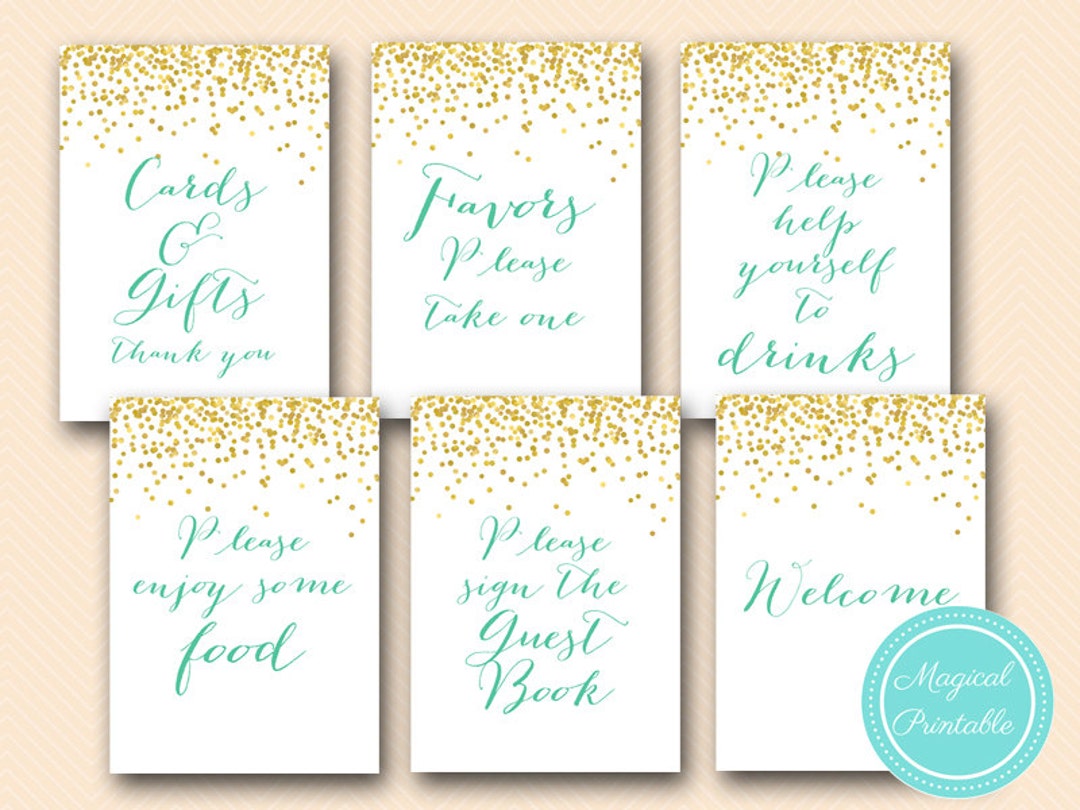 Cards
&
Gifts
Thank you
Favors
Please
take one
Please
help
yourself
to
drinks
Please
enjoy some
food
Please
sign the
Guest
Book
Welcome
Magical
Printable